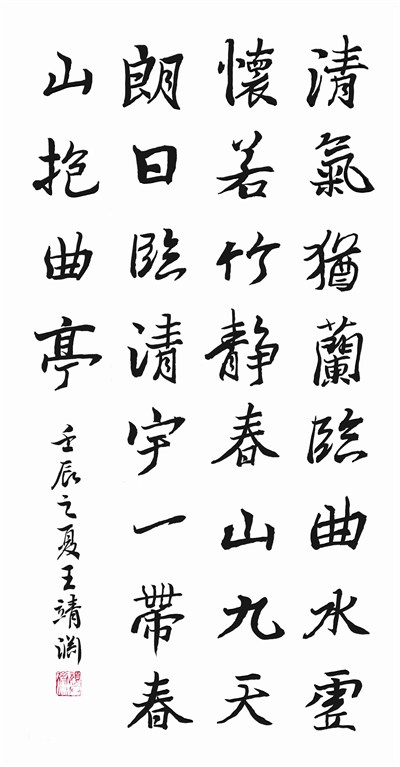 清氣猶蘭臨曲水虛
懷若竹靜春山九天
朗日臨清宇一帶春
山抱曲亭
壬辰之夏王靖淵